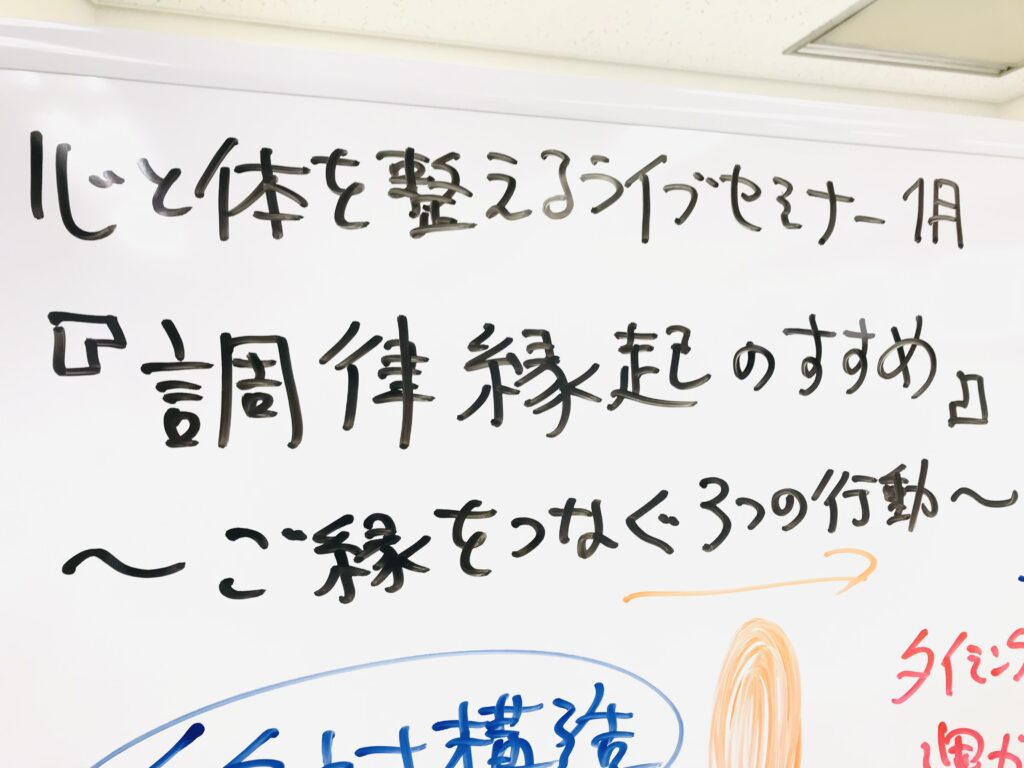 心と体を整えるライブセミナー 1月
『調律縁起のすすめ』
～ご縁をつなぐ3つの行動～
構造
タイミング
運が